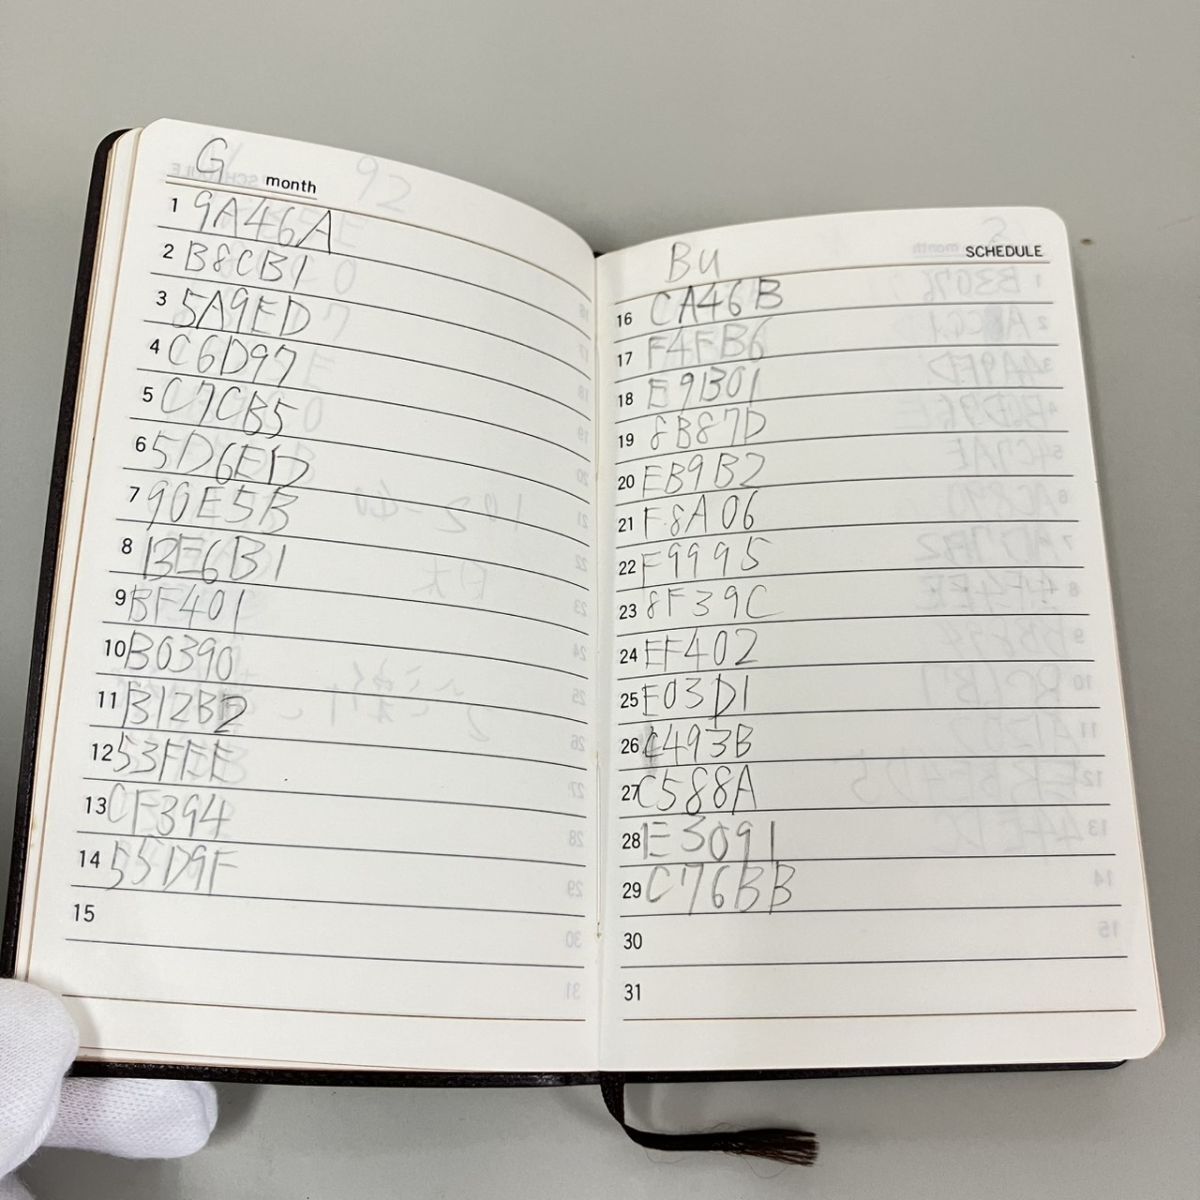 G
month
1 9A46A
2 B8CB1
3 5A9ED
4 C6D97
5 C7CB5
6 5D6ED
7 90E5B
8 BE6B1
9 BF401
10 B0390
11 B12B2
12 53FEE
13 CF394
14 55D9F
15
Bu
SCHEDULE
16 CA46B
17 F4FB6
18 E9B01
19 8B87D
20 EB9B2
21 F8A06
22 F9995
23 8F39C
24 EF402
25 E03D1
26 C493B
27 C588A
28 E3091
29 C76BB
30
31